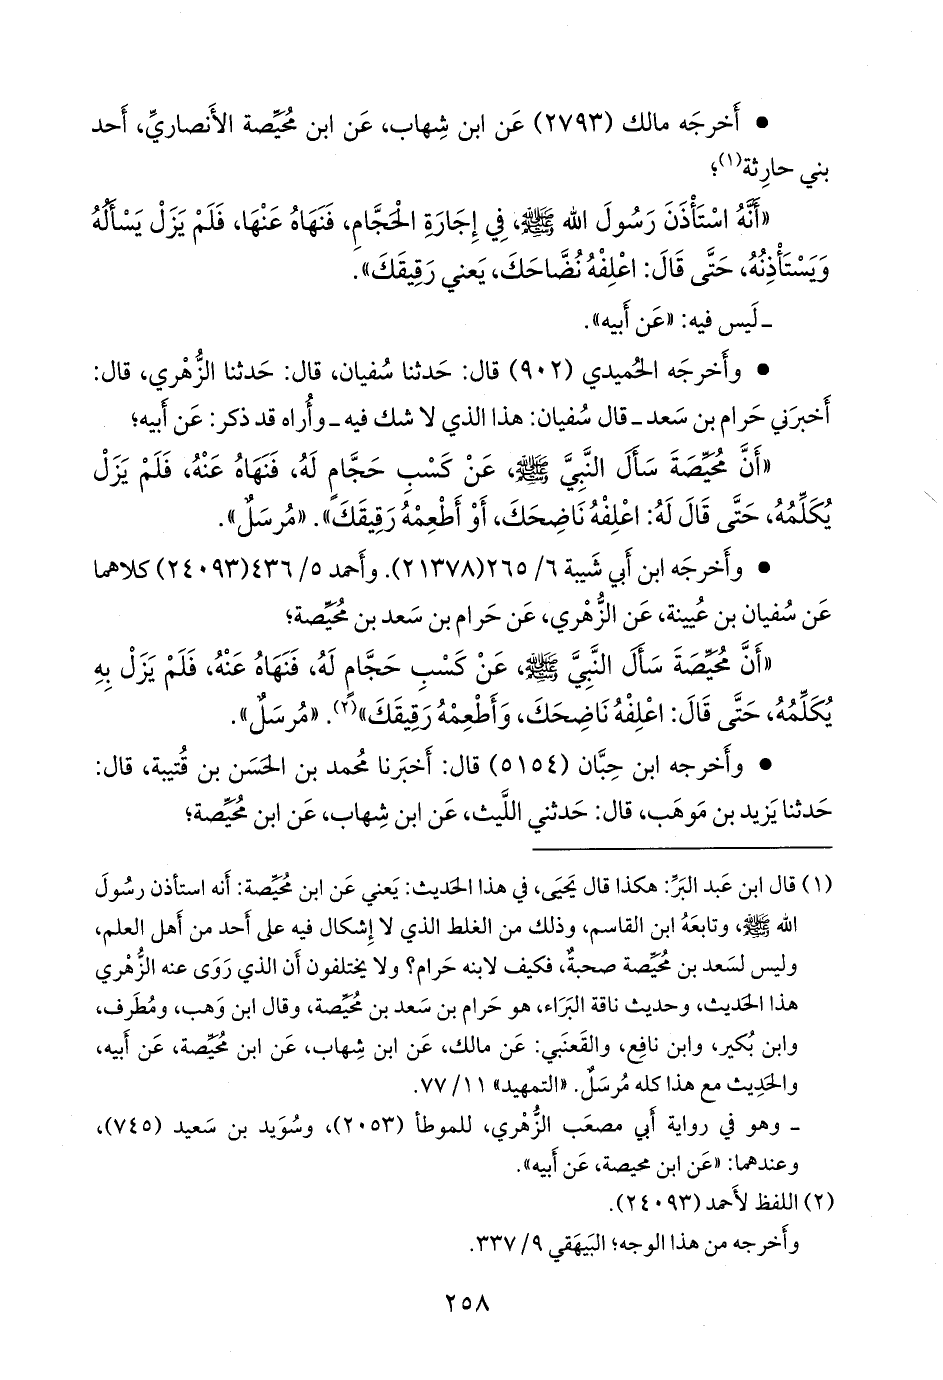 ● أَخرجَه مالك (٢٧٩٣) عَن ابن شِهاب، عَن ابن مُحَيِّصة الأَنصاريِّ، أَحد
بني حارِثة(١)؛
«أَنَّهُ اسْتَأْذَنَ رَسُولَ الله ﷺ، فِي إِجَارَةِ الْحَجَّامِ، فَنَهَاهُ عَنْهَا، فَلَمْ يَزَلْ يَسْأَلُهُ
وَيَسْتَأْذِنُهُ، حَتَّى قَالَ: اعْلِفْهُ نُضَّاحَكَ، يَعني رَقِيقَكَ».
ـ لَيس فيه: «عَن أَبيه».
● وأَخرجَه الحُميدي (٩٠٢) قال: حَدثنا سُفيان، قال: حَدثنا الزُّهْري، قال:
أَخبرَني حَرام بن سَعد ـ قال سُفيان: هذا الذي لا شك فيه ـ وأُراه قد ذكر: عَن أَبيه؛
«أَنَّ مُحَيِّصَةَ سَأَلَ النَّبِيَّ ﷺ، عَنْ كَسْبِ حَجَّامٍ لَهُ، فَنَهَاهُ عَنْهُ، فَلَمْ يَزَلْ
يُكَلِّمُهُ، حَتَّى قَالَ لَهُ: اعْلِفْهُ نَاضِحَكَ، أَوْ أَطْعِمْهُ رَقِيقَكَ». «مُرسَلٌ».
● وأَخرجَه ابن أَبي شَيبة ٦/ ٢٦٥(٢١٣٧٨). وأَحمد ٥/ ٤٣٦(٢٤٠٩٣) كلاهما
عَن سُفيان بن عُيينة، عَن الزُّهْري، عَن حَرام بن سَعد بن مُحَيِّصة؛
«أَنَّ مُحَيِّصَةَ سَأَلَ النَّبِيَّ ﷺ، عَنْ كَسْبِ حَجَّامٍ لَهُ، فَنَهَاهُ عَنْهُ، فَلَمْ يَزَلْ بِهِ
يُكَلِّمُهُ، حَتَّى قَالَ: اعْلِفْهُ نَاضِحَكَ، وَأَطْعِمْهُ رَقِيقَكَ»(٢). «مُرسَلٌ».
● وأَخرجه ابن حِبَّان (٥١٥٤) قال: أَخبَرنا مُحمد بن الحَسَن بن قُتيبة، قال:
حَدثنا يَزيد بن مَوهَب، قال: حَدثني اللَّيث، عَن ابن شِهاب، عَن ابن مُحَيِّصة؛
(١) قال ابن عَبد البَرِّ: هكذا قال يَحيَى، في هذا الحَديث: يَعني عَن ابن مُحَيِّصة: أَنه استأذن رسُولَ
الله ﷺ، وتابعَهُ ابن القاسم، وذلك من الغلط الذي لا إِشكال فيه على أحد من أَهل العلم،
وليس لسَعد بن مُحَيِّصة صحبةٌ، فكيف لابنه حَرام؟ ولا يختلفون أَن الذي رَوَى عنه الزُّهْري
هذا الحَديث، وحديث ناقة البَرَاء، هو حَرام بن سَعد بن مُحَيِّصة، وقال ابن وَهب، ومُطَرف،
وابن بُكير، وابن نافع، والقَعنَبي: عَن مالك، عَن ابن شِهاب، عَن ابن مُحَيِّصة، عَن أَبيه،
والحَدِيث مع هذا كله مُرسَلٌ. «التمهيد» ١١/ ٧٧.
ـ وهو في رواية أَبي مصعَب الزُّهْري، للموطأ (٢٠٥٣)، وسُوَيد بن سَعيد (٧٤٥)،
وعندهما: «عَن ابن محيصة، عَن أَبيه».
(٢) اللفظ لأَحمد (٢٤٠٩٣).
وأَخرجه من هذا الوجه؛ البَيهَقي ٩/ ٣٣٧.
٢٥٨